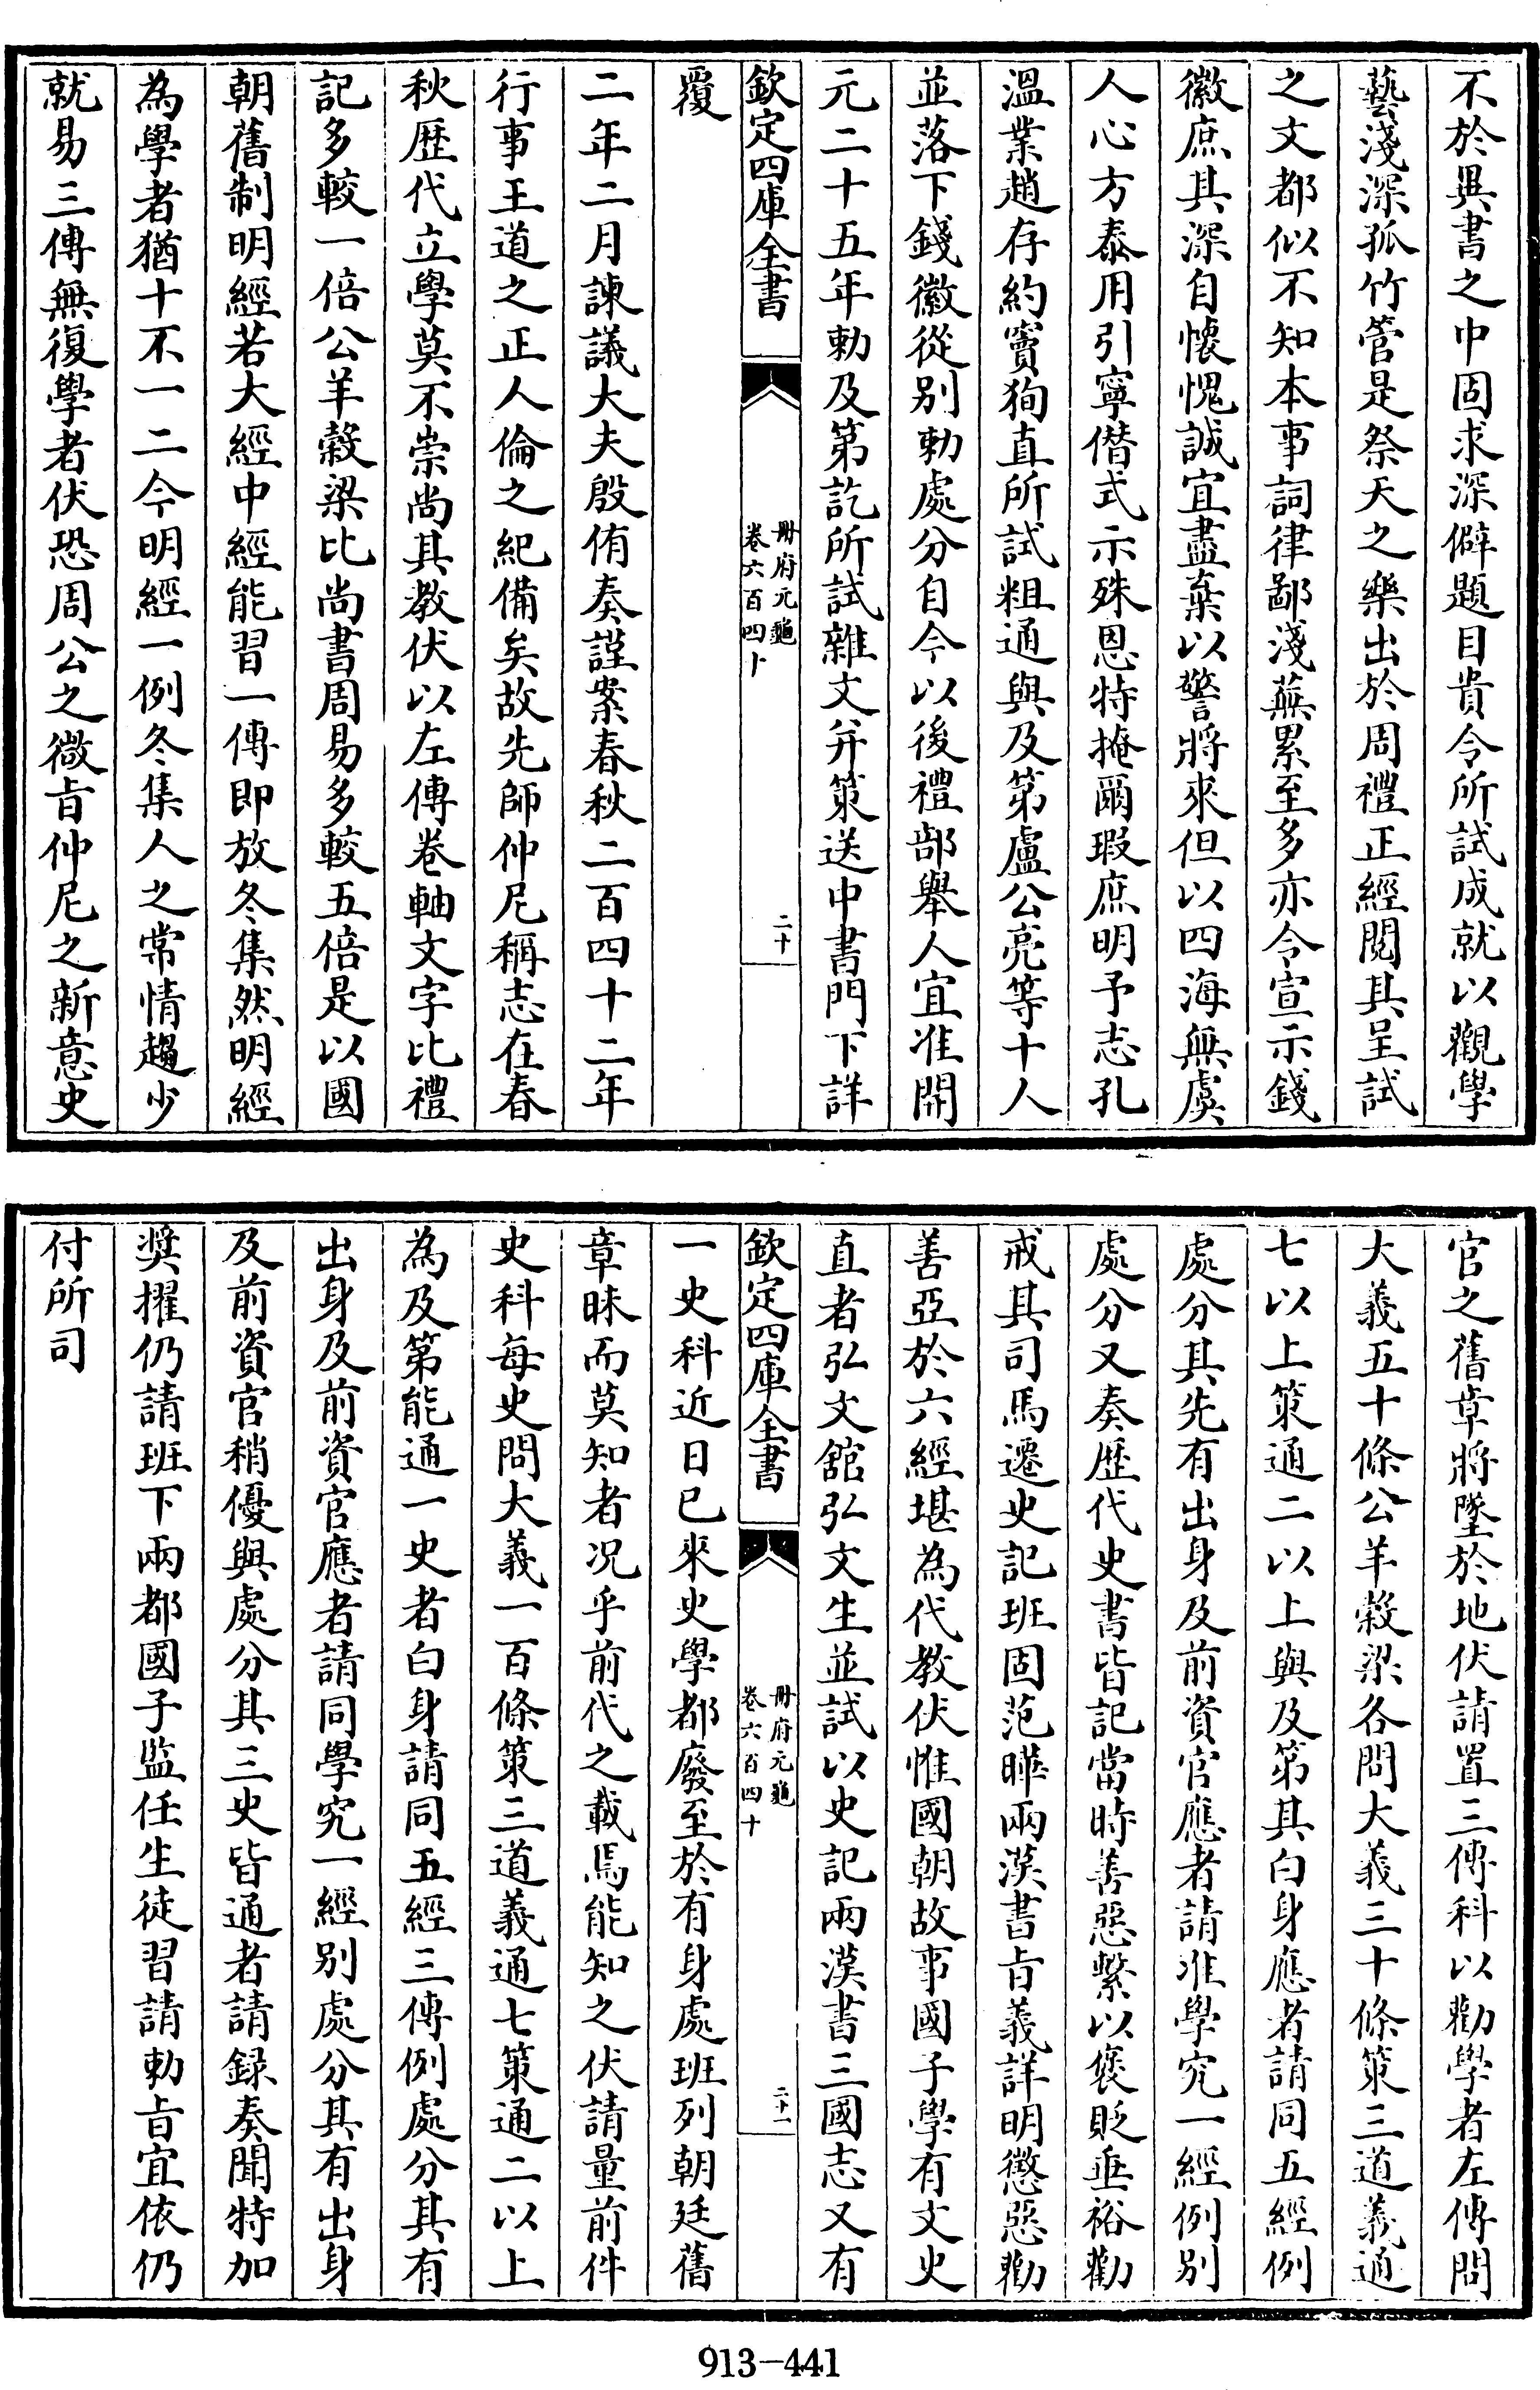 不於異書之中固求深僻題目貴令所試成就以觀學
藝淺深孤竹管是祭天之樂出於周禮正經閱其呈試
之文都似不知本事詞律鄙淺蕪累至多亦令宣示錢
徽庶其深自懐愧誠宜盡棄以警將來但以四海無虞
人心方泰用引寧僭式示殊恩特掩爾瑕庶明予志孔
溫業趙存約竇狥直所試粗通與及第盧公亮等十人
並落下錢徽從别勅處分自今以後禮部舉人宜准開
元二十五年勅及第訖所試雜文并策送中書門下詳
欽定四庫全書
冊府元龜
卷六百四十
二十
覆
二年二月諫議大夫殷侑奏謹案春秋二百四十二年
行事王道之正人倫之紀備矣故先師仲尼稱志在春
秋歴代立學莫不崇尚其教伏以左傳卷軸文字比禮
記多較一倍公羊榖梁比尚書周易多較五倍是以國
朝舊制明經若大經中經能習一傳即放冬集然明經
為學者猶十不一二今明經一例冬集人之常情趨少
就易三傳無復學者伏恐周公之微旨仲尼之新意史
官之舊章將墜於地伏請置三傳科以勸學者左傳問
大義五十條公羊榖梁各問大義三十條策三道義通
七以上策通二以上與及第其白身應者請同五經例
處分其先有出身及前資官應者請准學究一經例别
處分又奏歴代史書皆記當時善惡繫以褒貶垂裕勸
戒其司馬遷史記班固范曄兩漢書旨義詳明懲惡勸
善亞於六經堪為代教伏惟國朝故事國子學有文史
直者弘文舘弘文生並試以史記兩漢書三國志又有
欽定四庫全書
冊府元龜
卷六百四十
二十一
一史科近日已來史學都廢至於有身處班列朝廷舊
章昧而莫知者况乎前代之載焉能知之伏請量前件
史科每史問大義一百條策三道義通七策通二以上
為及第能通一史者白身請同五經三傳例處分其有
出身及前資官應者請同學究一經别處分其有出身
及前資官稍優與處分其三史皆通者請録奏聞特加
奬擢仍請班下兩都國子監任生徒習請勅旨宜依仍
付所司
913-441